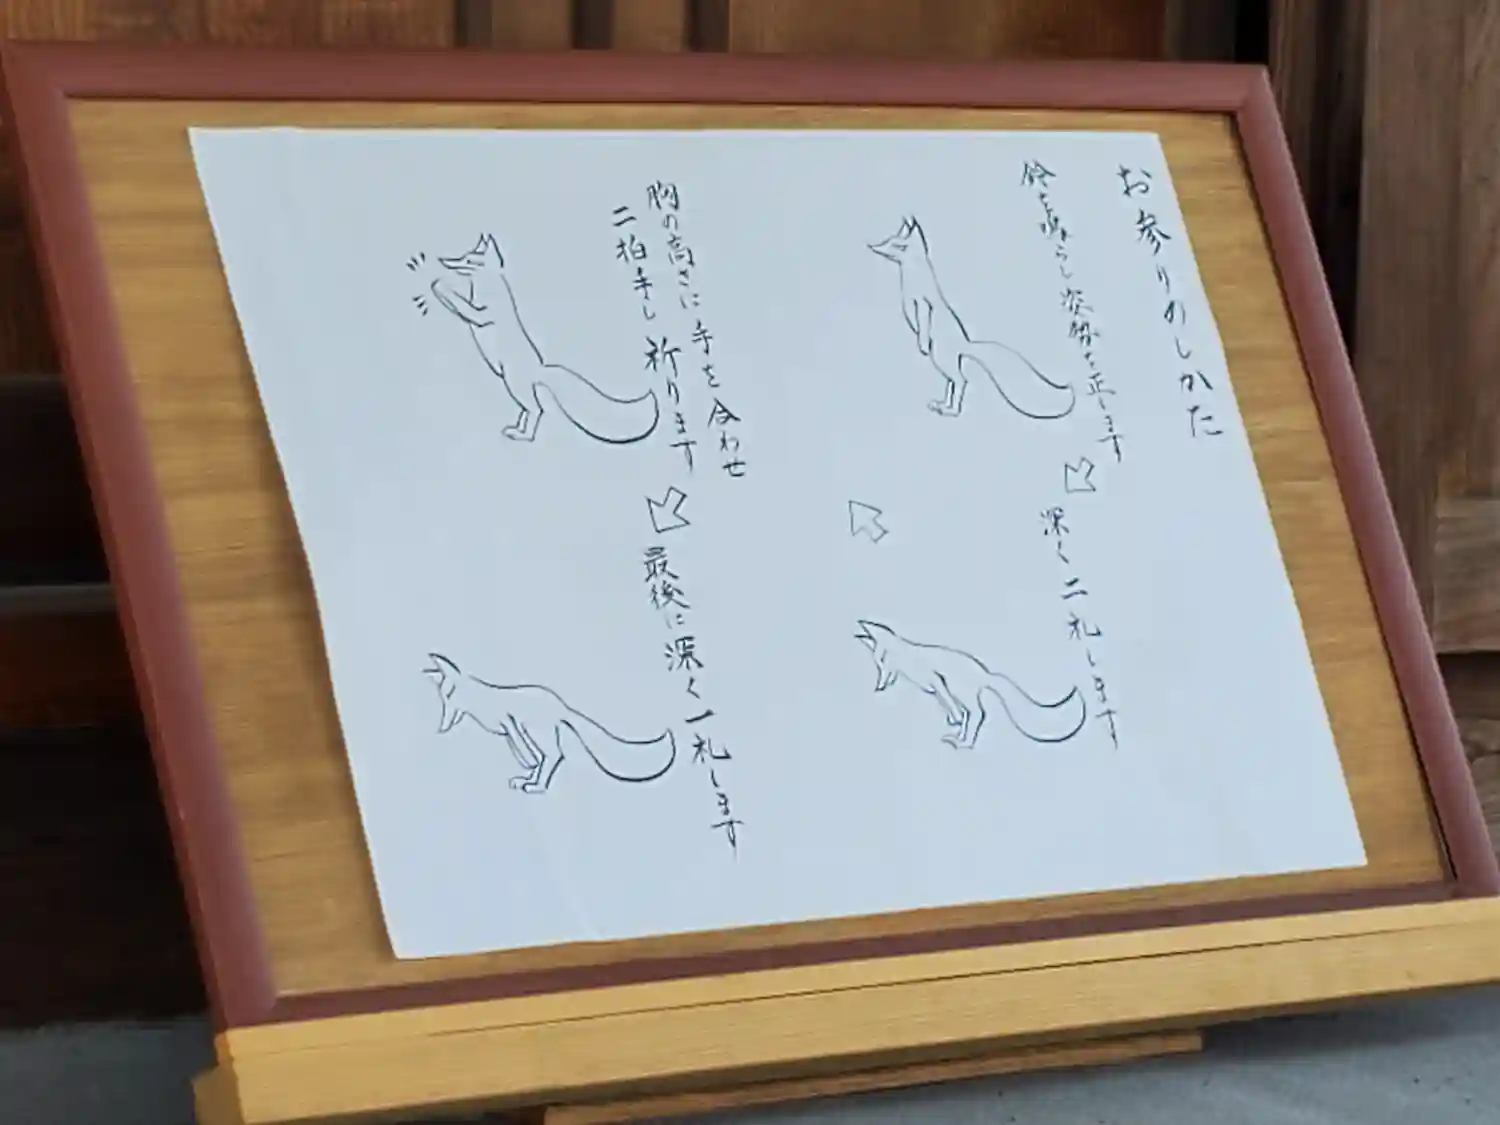 お参りのしかた
鈴を鳴らし姿勢を正します
深く二礼します
胸の高さに手を合わせ
二拍手し祈ります
最後に深く一礼します